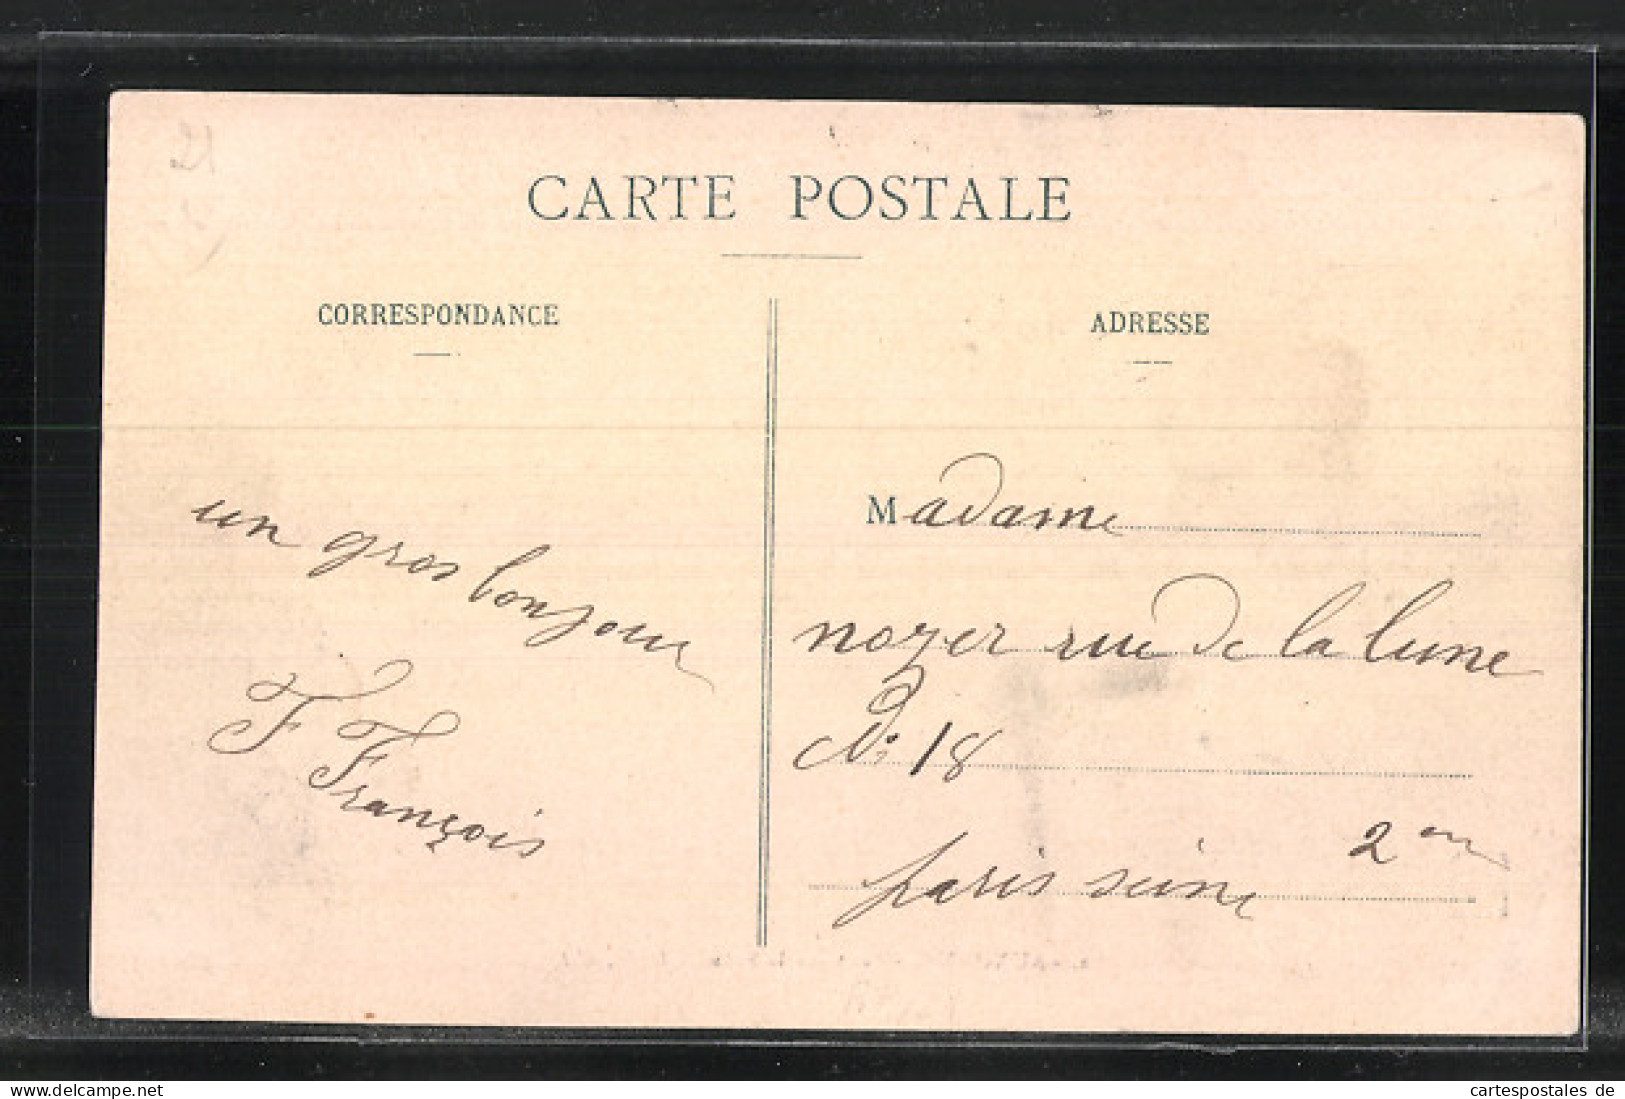 CARTE POSTALE
CORRESPONDANCE
ADRESSE
un gros bonjour
F François
Madame
noyer rue de la lune
18
paris seine 2
www.delcampe.net
cartespostales de